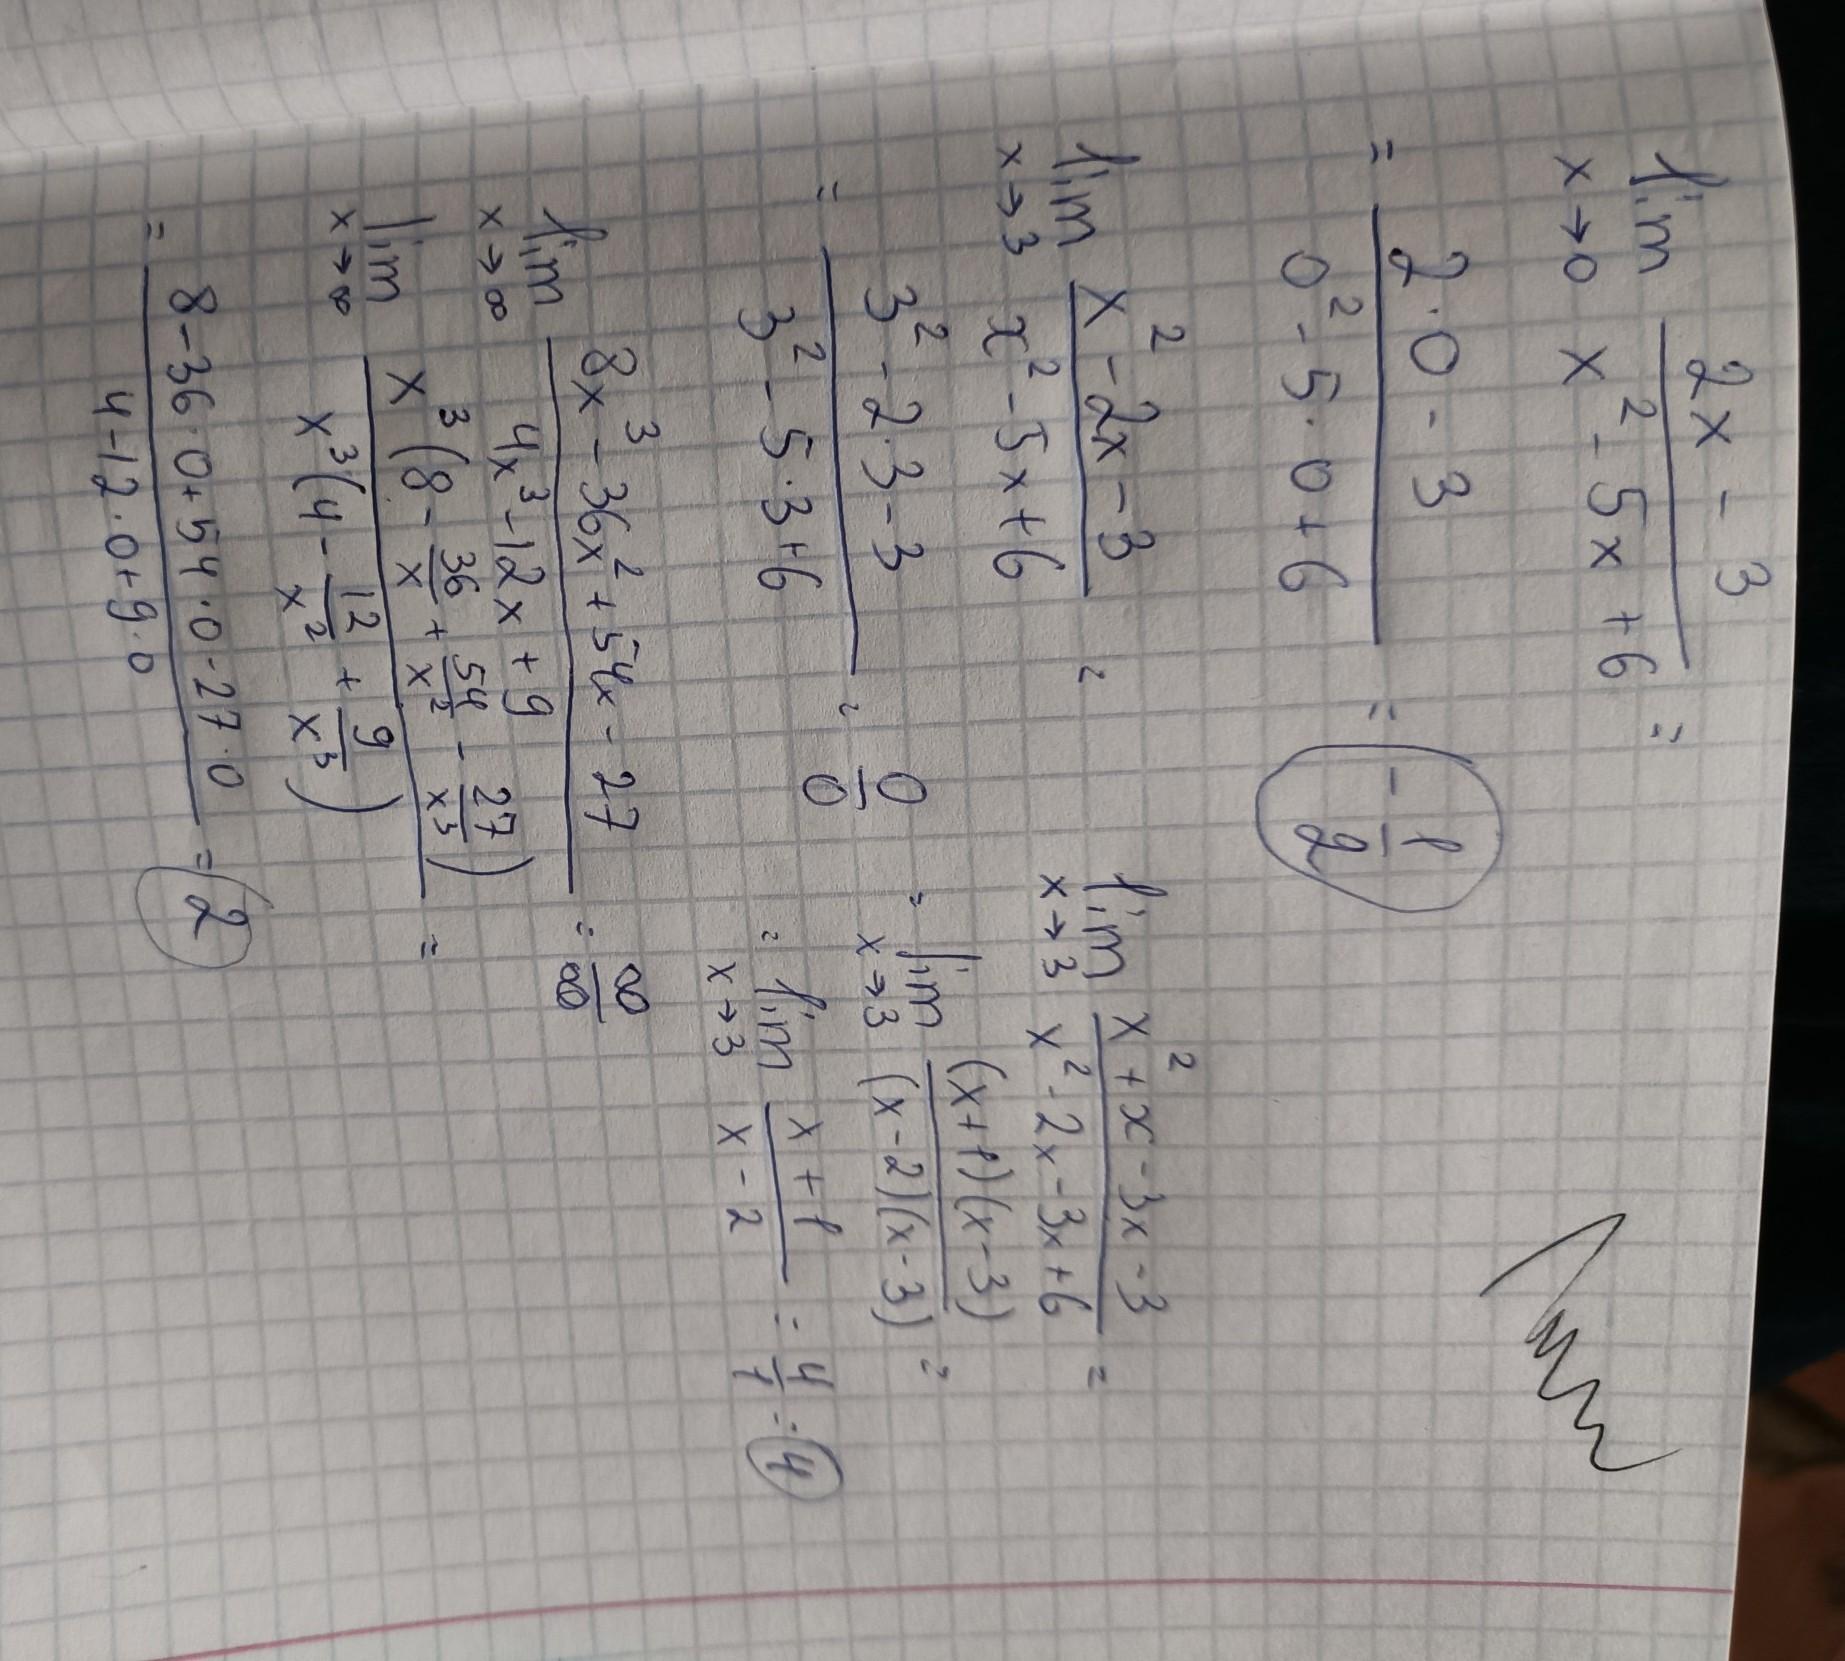 lim x→0 (2x - 3)/(x² - 5x + 6) =
= (2·0 - 3)/(0² - 5·0 + 6) = -1/2
lim x→3 (x² - 2x - 3)/(x² - 5x + 6) =
= (3² - 2·3 - 3)/(3² - 5·3 + 6) = 0/0
lim x→3 (x² + x - 3x - 3)/(x² - 2x - 3x + 6) =
= lim x→3 (x+1)(x-3)/(x-2)(x-3) =
= lim x→3 (x+1)/(x-2) = 4/1 = 4
lim x→∞ (8x³ - 36x² + 54x - 27)/(4x³ - 12x + 9) = ∞/∞
lim x→∞ x³(8 - 36/x + 54/x² - 27/x³)/x³(4 - 12/x² + 9/x³) =
= (8 - 36·0 + 54·0 - 27·0)/(4 - 12·0 + 9·0) = 2